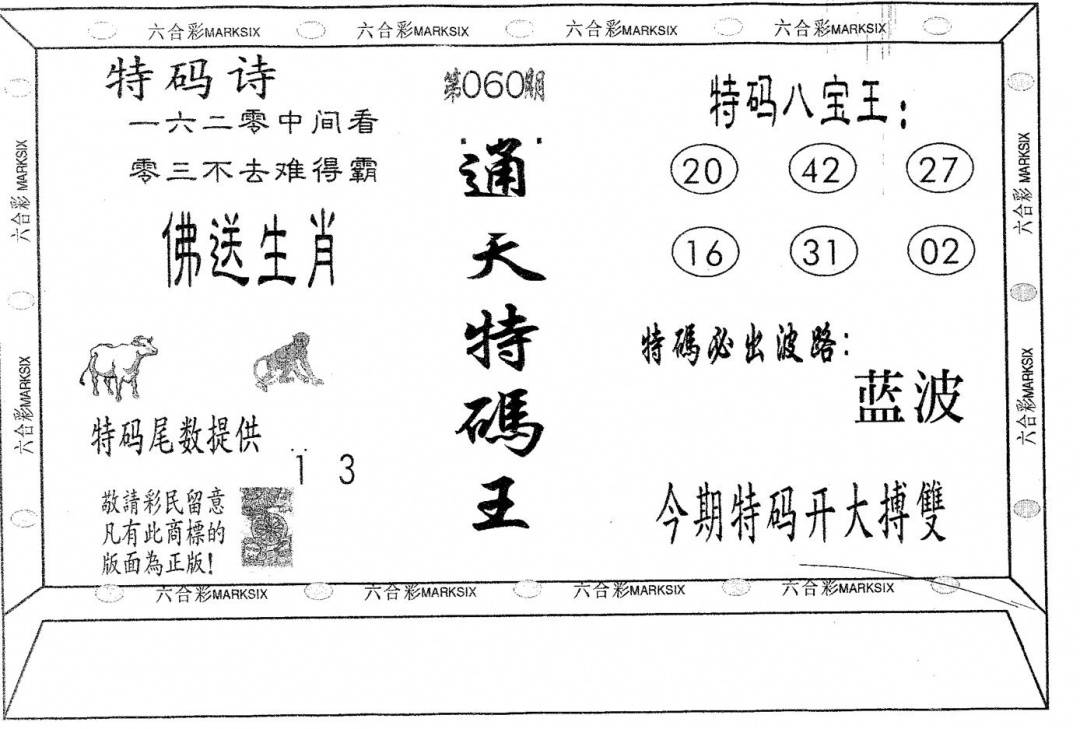 六合彩MARKSIX 六合彩MARKSIX 六合彩MARKSIX 六合彩MARKSIX
特码诗
一六二零中间看
零三不去难得霸
佛送生肖
特码尾数提供
1 3
敬請彩民留意
凡有此商標的
版面為正版!
第060期
通天特碼王
特码八宝王:
20 42 27
16 31 02
特碼必出波路:
蓝波
今期特码开大搏雙
六合彩MARKSIX
六合彩MARKSIX
六合彩MARKSIX
六合彩MARKSIX
六合彩MARKSIX 六合彩MARKSIX 六合彩MARKSIX 六合彩MARKSIX